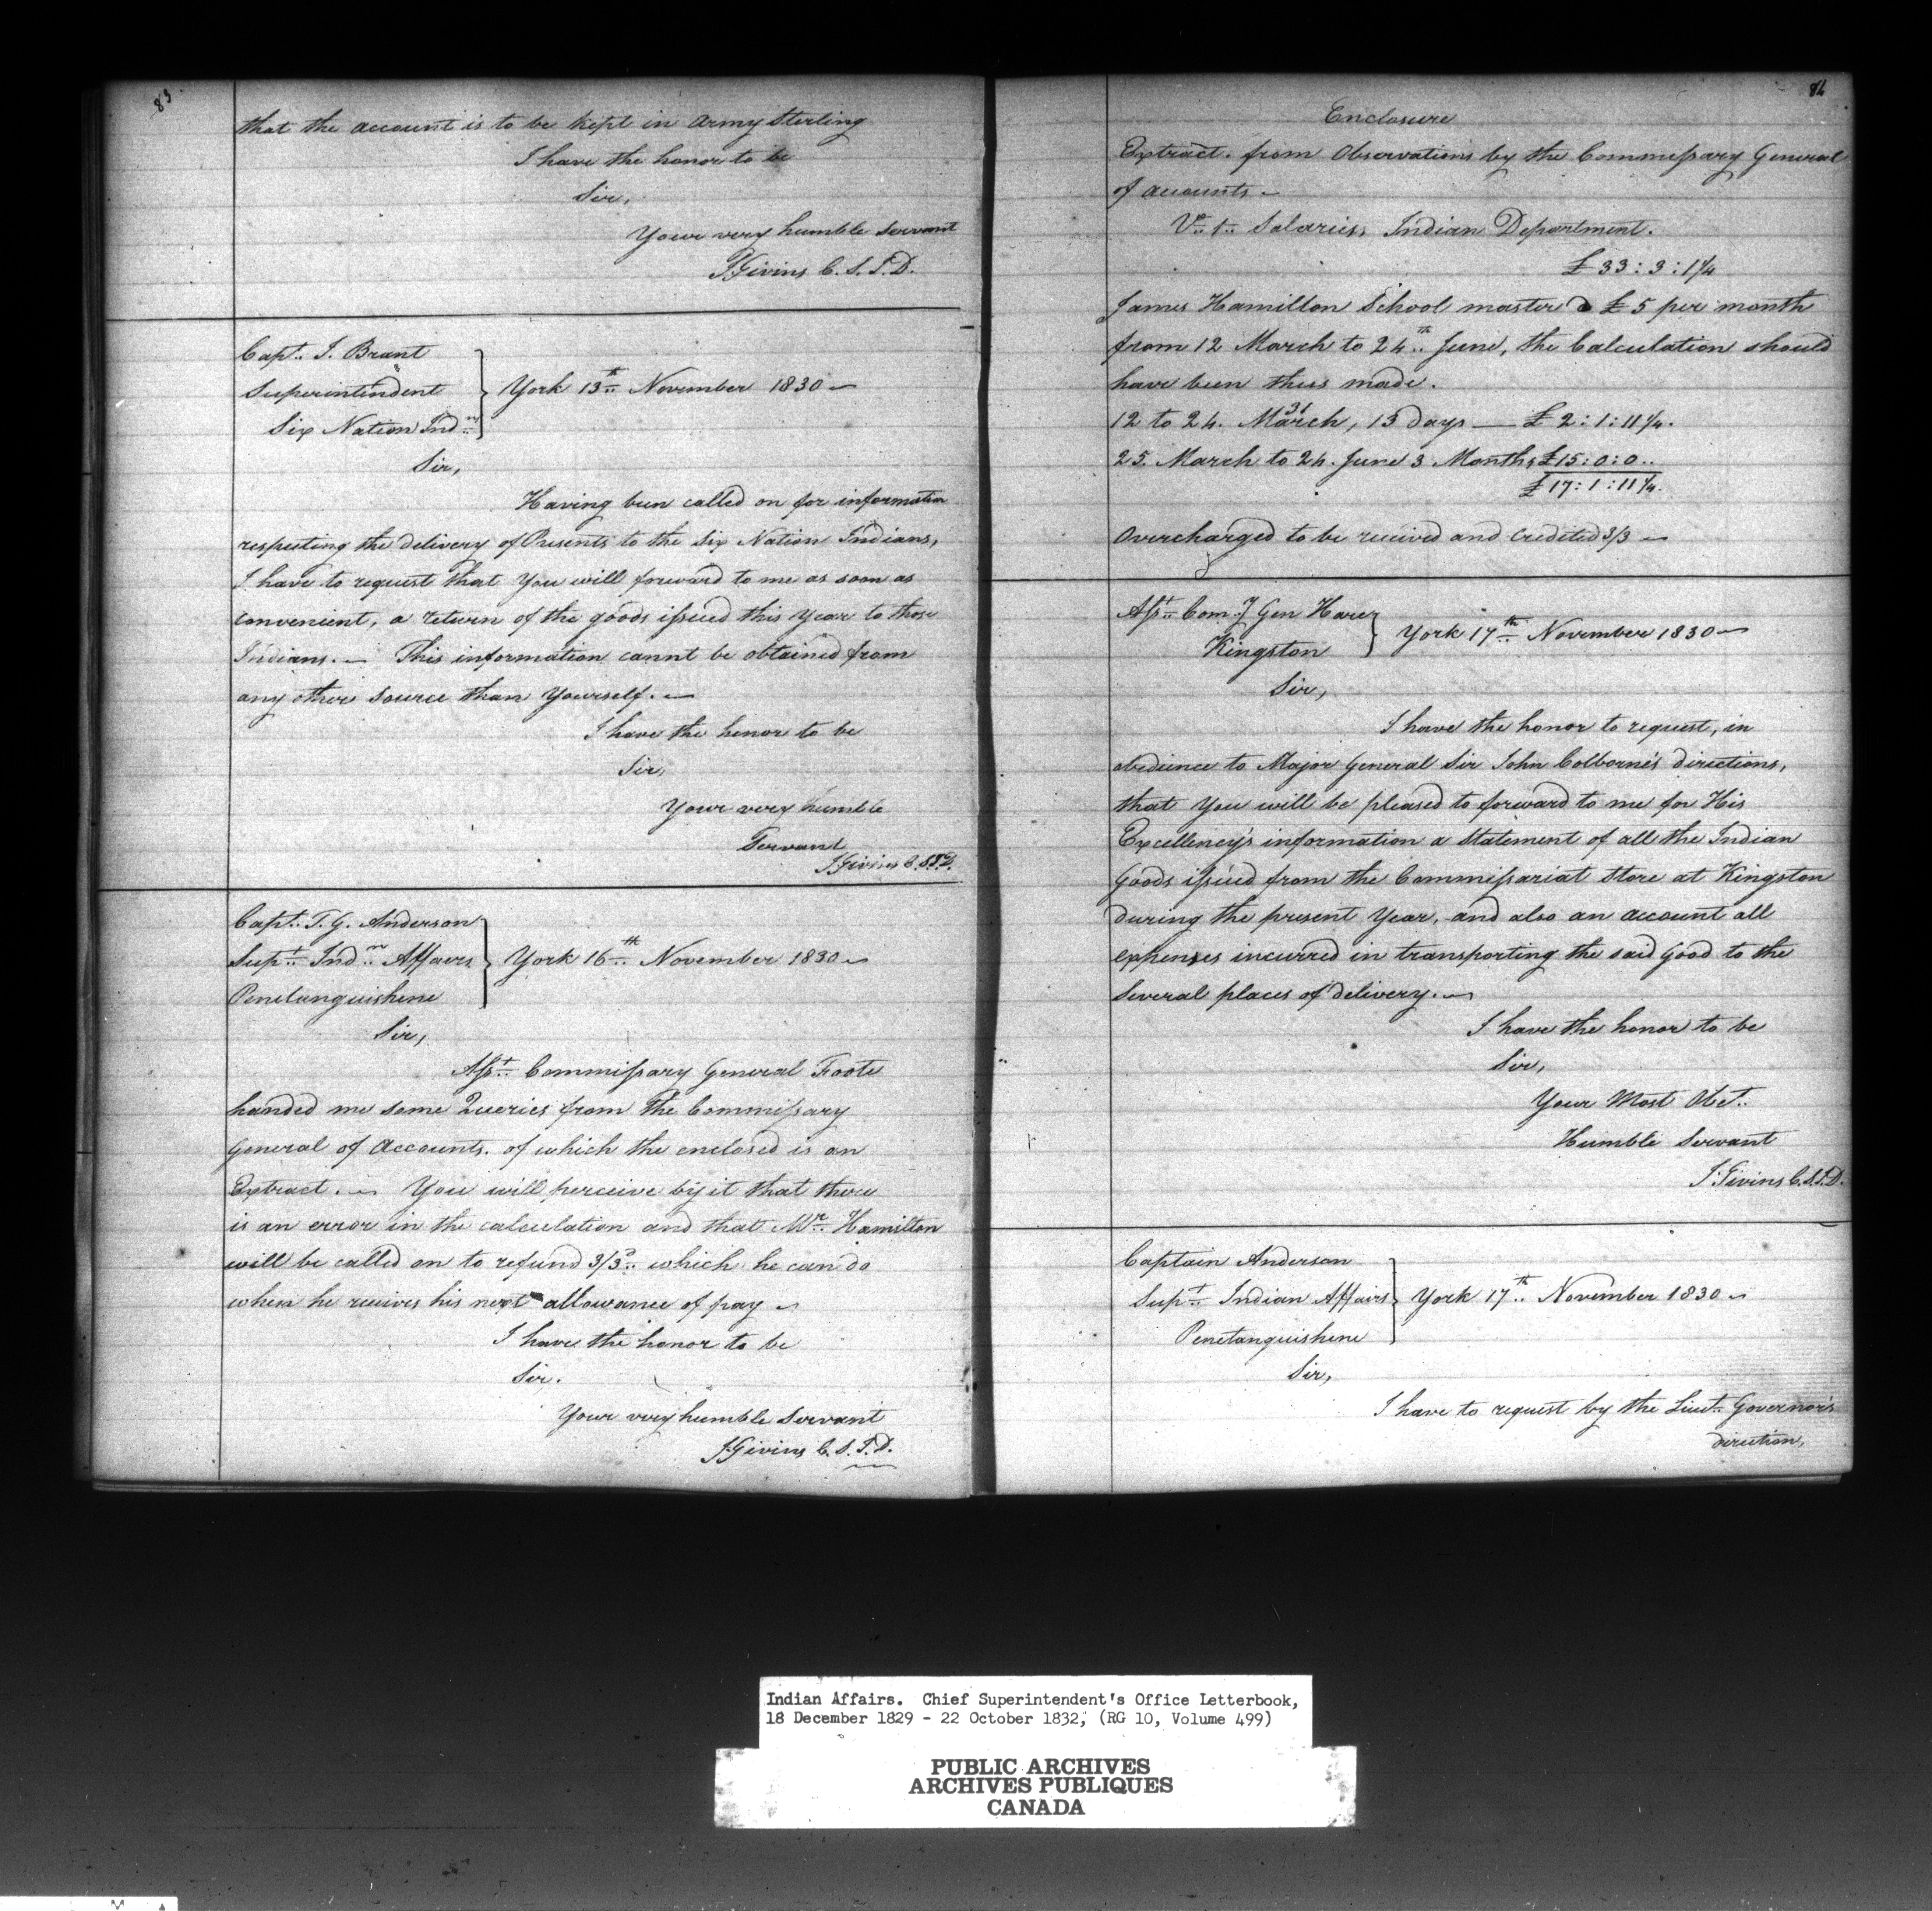 83
that the account is to be kept in Army Sterling
I have the honor to be
Sir,
Your very humble Servant
J. Givins C. S. I. D.
Capt. J. Brant
Superintendent
Six Nation Indns
York 13th November 1830
Sir,
Having been called on for information
respecting the delivery of Presents to the Six Nation Indians,
I have to request that You will forward to me as soon as
convenient, a return of the goods issued this Year to those
Indians. — This information cannt be obtained from
any other source than Yourself. —
I have the honor to be
Sir,
Your very humble
Servant
J Givins C. S I D.
Capt. T. G. Anderson
Supt. Indn. Affairs
Penetanguishene
York 16th November 1830
Sir,
Asst. Commissary General Foote
handed me some Queries from the Commissary
General of Accounts. of which the enclosed is an
Extract. — You will perceive by it that there
is an error in the calculation and that Mr. Hamilton
will be called on to refund 3/3d. which he can do
when he receives his next allowance of pay
I have the honor to be
Sir.
Your very humble Servant
J Givins C. S. I. D.
84
Enclosure
Extract. from Observations by the Commissary General
of accounts —
Vo. 1. Salaries, Indian Department.
£ 33 : 3 : 1 1/4
James Hamilton School master @ £ 5 per month
from 12 March to 24th. June, the Calculation should
have been thus made.
12 to 24. March, 13 days — £ 2 : 1 : 11 1/4.
31
25. March to 24. June 3 Months £ 15 : 0 : 0..
£ 17 : 1 : 11 1/4.
Overcharged to be received and credited 3/3 —
Asst. Comy Gen Hare
Kingston
York 17th November 1830 —
Sir,
I have the honor to request, in
obedience to Major General Sir John Colborne's directions,
that You will be pleased to forward to me for His
Excellency's information a Statement of all the Indian
Goods issued from the Commissariat Store at Kingston
during the present Year, and also an account all
expenses incurred in transporting the said Good to the
several places of delivery. —
I have the honor to be
Sir,
Your Most Obet..
Humble Servant
J. Givins C. S. I. D.
Captain Anderson
Supt. Indian Affairs
Penetanguishene
York 17th. November 1830
Sir,
I have to request by the Lieut. Governor's
direction,
Indian Affairs. Chief Superintendent's Office Letterbook,
18 December 1829 - 22 October 1832, (RG 10, Volume 499)
PUBLIC ARCHIVES
ARCHIVES PUBLIQUES
CANADA